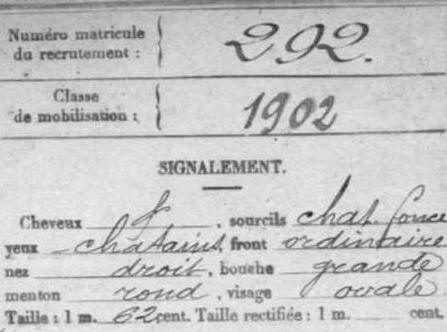 Numéro matricule
du recrutement : 292.
Classe
de mobilisation : 1902
SIGNALEMENT.
Cheveux &, sourcils chat foncé
yeux châtains, front ordinaire
nez droit, bouche grande
menton rond, visage ovale
Taille : 1 m. 62 cent. Taille rectifiée : 1 m. cent.